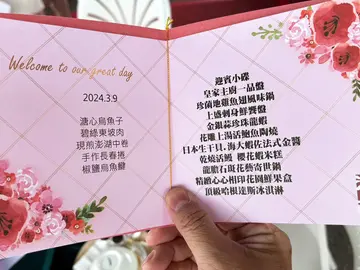 Welcome to our great day
2024.3.9
溏心烏魚子
碧綠東坡肉
現煎澎湖中卷
手作長春捲
椒鹽烏魚鰾
迎賓小碟
皇家主廚一品盤
珍菌地雞魚翅風味鍋
上盛刺身鮮饗盤
金銀蒜珍珠龍蝦
花雕上湯活鮑魚陶燒
日本生干貝.海大蝦佐法式金醬
乾燒活鰻 櫻花蝦米糕
龍膽石斑花藝寄世鍋
精緻心心相印花園鮮果盒
頂級哈根達斯冰淇淋